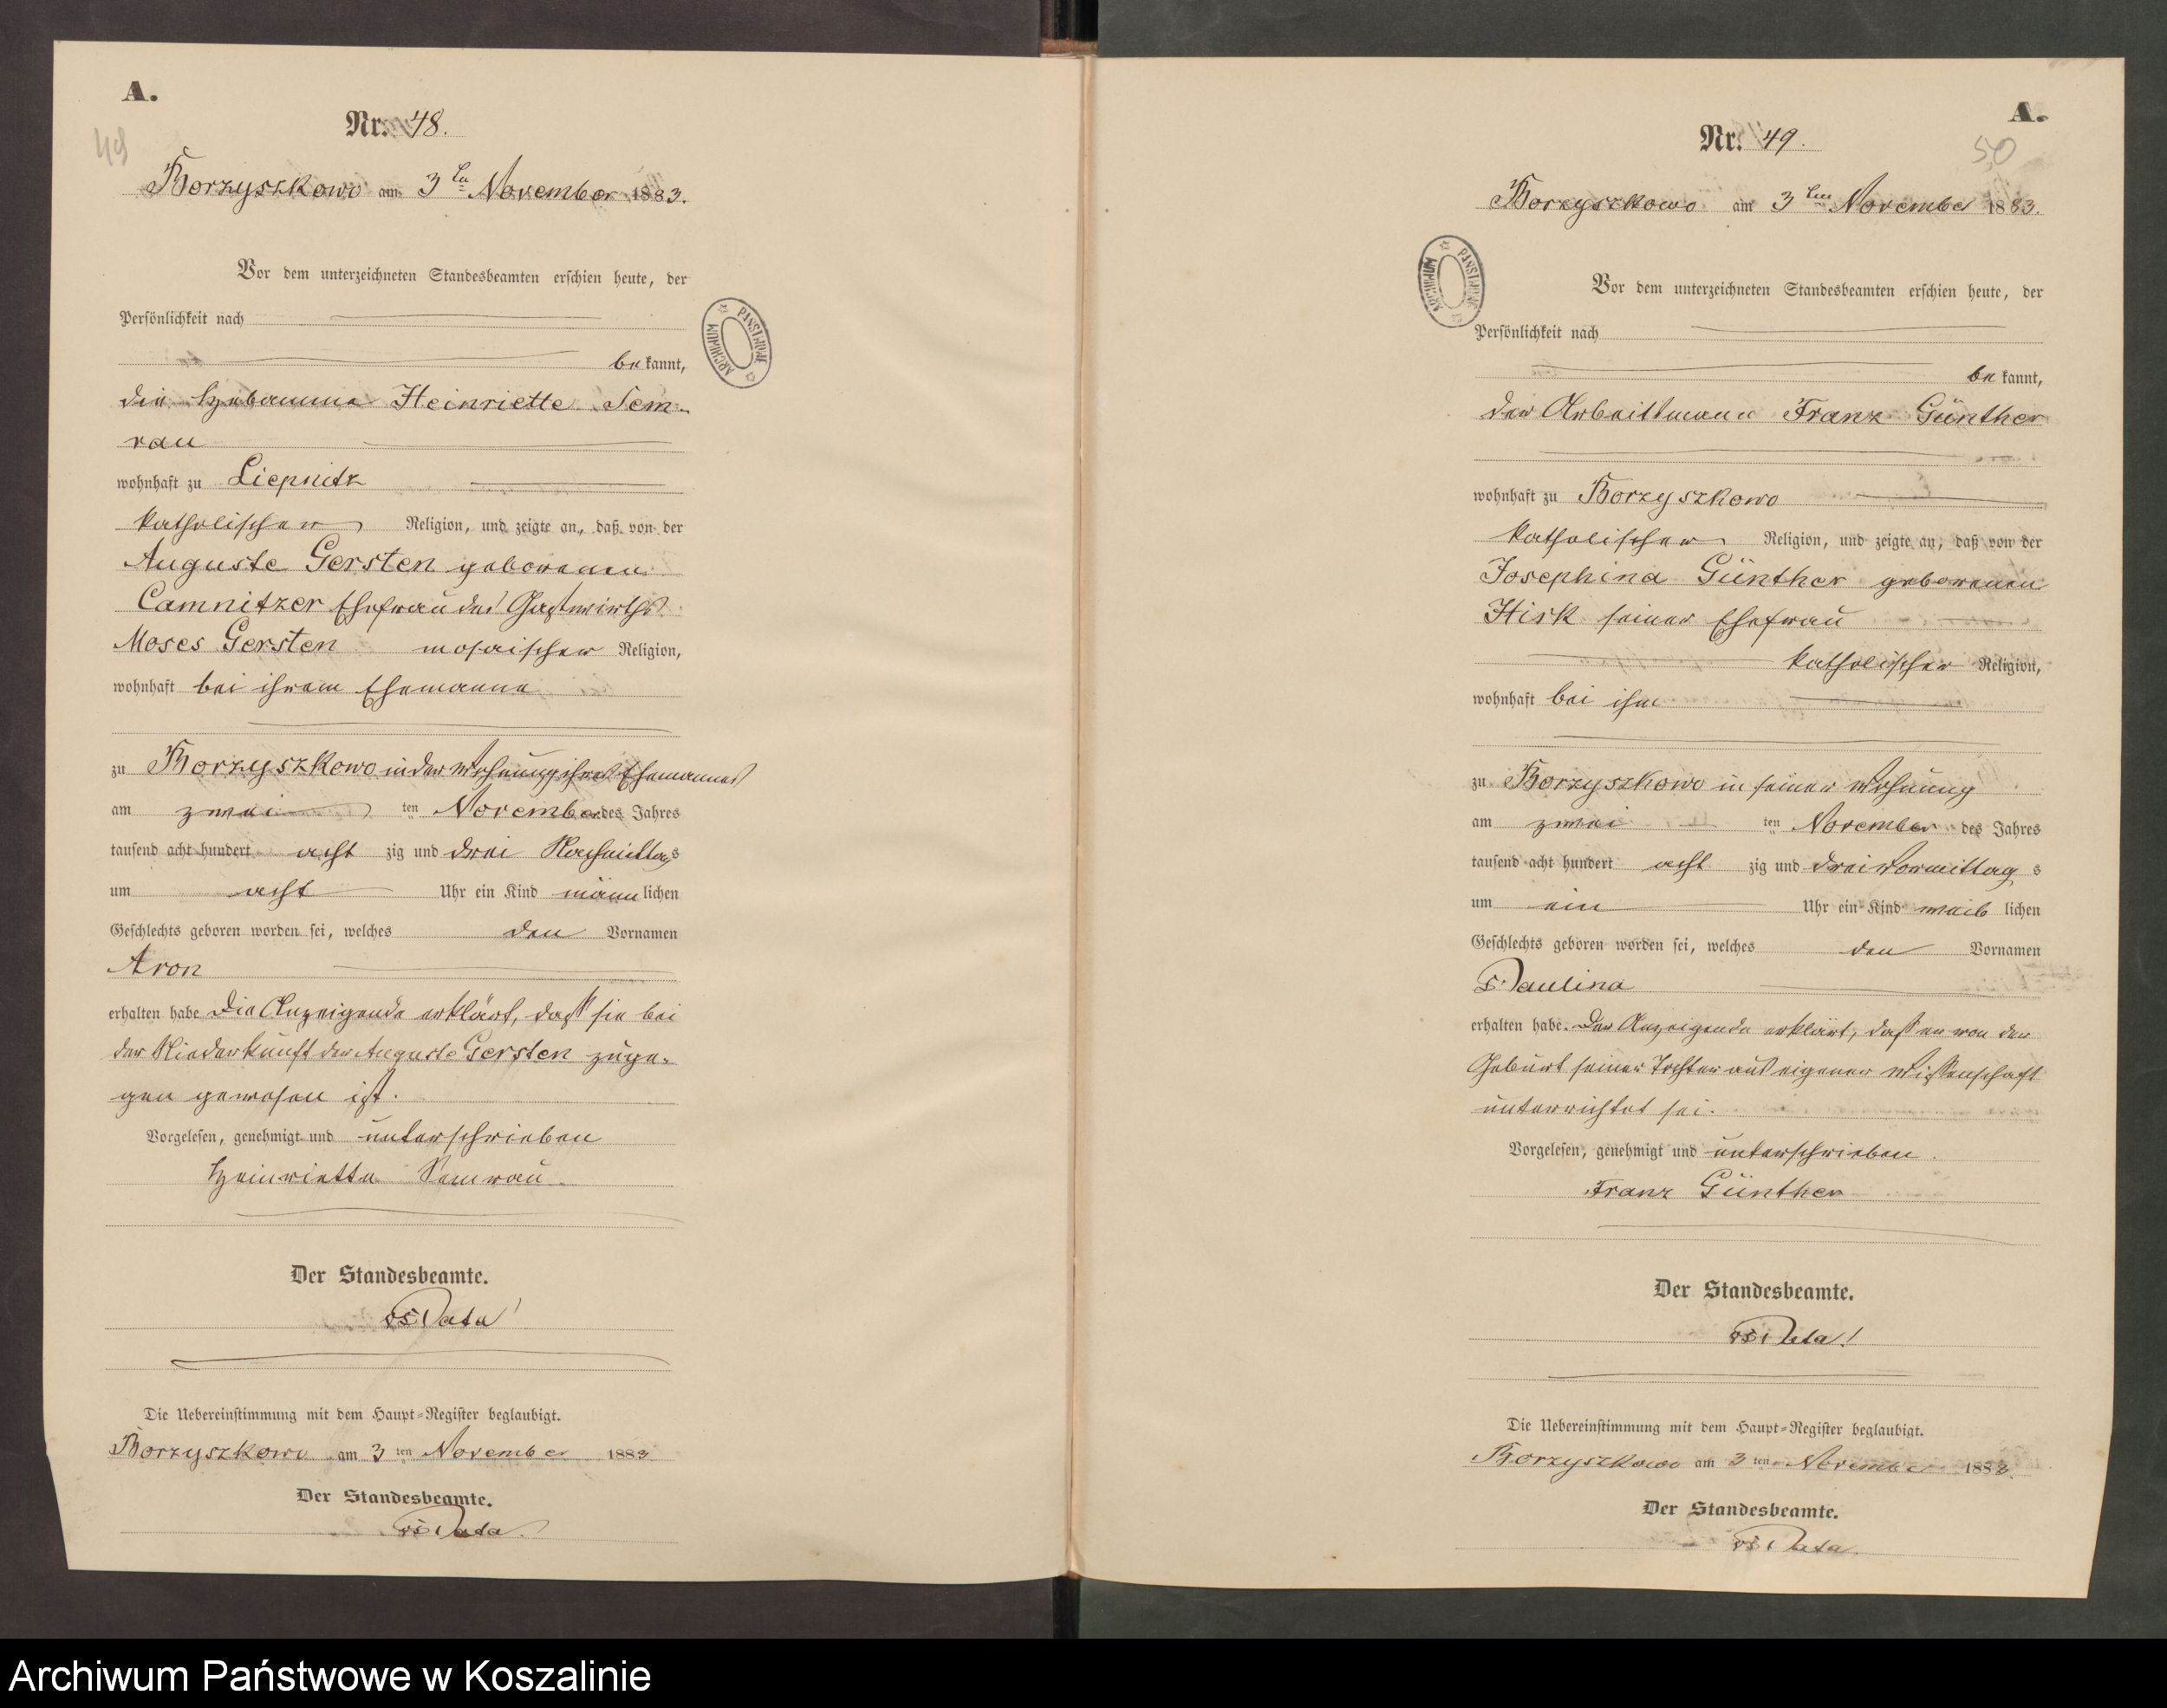 A.
49
Nr. 48.
Borzyszkowo am 3ten November 1883.
Vor dem unterzeichneten Standesbeamten erschien heute, der
Persönlichkeit nach
be kannt,
die Hebamme Heinriette Sem-
rau
wohnhaft zu Liepnitz
katholischer Religion, und zeigte an, daß von der
Auguste Gersten geborenen
Camnitzer Ehefrau des Gastwirths
Moses Gersten mosaischer Religion,
wohnhaft bei ihrem Ehemanne
zu Borzyszkowo in der Wohnung ihres Ehemannes
am zwei ten November des Jahres
tausend acht hundert acht zig und drei Nachmittags
um acht Uhr ein Kind männ lichen
Geschlechts geboren worden sei, welches den Vornamen
Aron
erhalten habe. Die Anzeigende erklärt, daß sie bei
der Niederkunft der Auguste Gersten zuge-
gen gewesen ist.
Vorgelesen, genehmigt und unterschrieben
Heinriette Semrau
Der Standesbeamte.
Die Uebereinstimmung mit dem Haupt-Register beglaubigt.
Borzyszkowo am 3ten November 1883
Der Standesbeamte.
ARCHIWUM PAŃSTWOWE
A.
50
Nr. 49.
Borzyszkowo am 3ten November 1883.
Vor dem unterzeichneten Standesbeamten erschien heute, der
Persönlichkeit nach
be kannt,
der Arbeitsmann Franz Günther
wohnhaft zu Borzyszkowo
katholischer Religion, und zeigte an, daß von der
Josephina Günther geborenen
Hisk seiner Ehefrau
katholischer Religion,
wohnhaft bei ihm
zu Borzyszkowo in seiner Wohnung
am zwei ten November des Jahres
tausend acht hundert acht zig und drei Vormittag s
um ein Uhr ein Kind weib lichen
Geschlechts geboren worden sei, welches den Vornamen
Paulina
erhalten habe. Der Anzeigende erklärt, daß er von der
Geburt seiner Tochter aus eigener Wissenschaft
unterrichtet sei.
Vorgelesen, genehmigt und unterschrieben.
Franz Günther
Der Standesbeamte.
Die Uebereinstimmung mit dem Haupt-Register beglaubigt.
Borzyszkowo am 3ten November 1883.
Der Standesbeamte.
ARCHIWUM PAŃSTWOWE
Archiwum Państwowe w Koszalinie